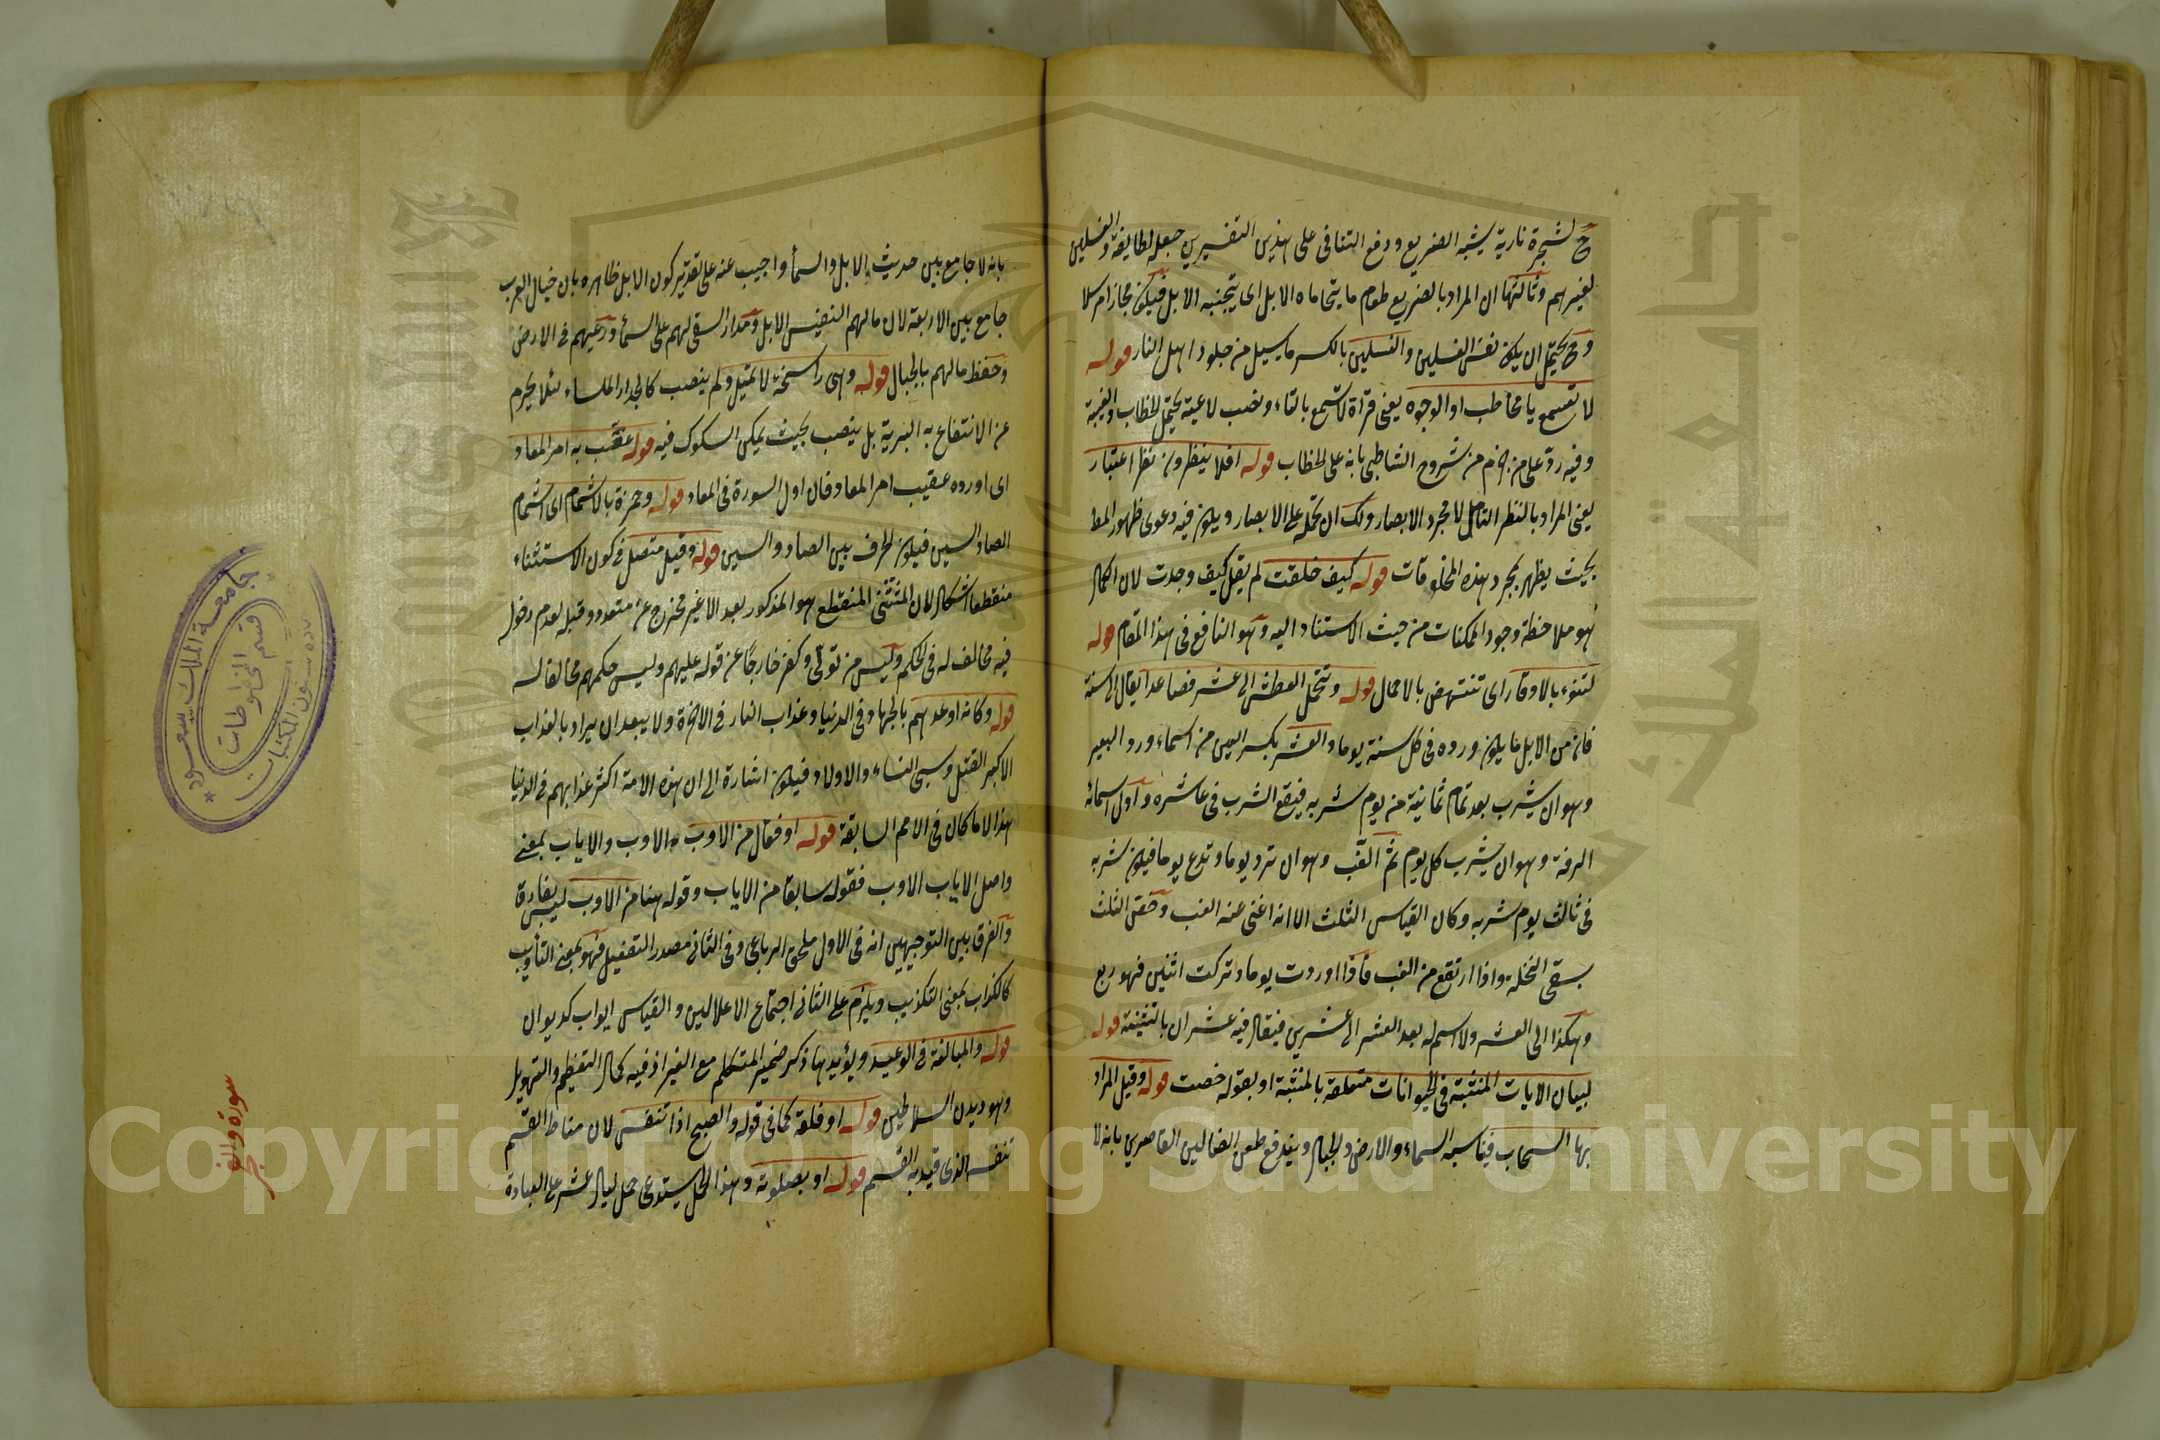 ح لشجرة نارية يشبه الضريع ودفع التنافى على هذين التفسيرين جعله لطايفة والغسلين
لغيرهم وثالثها ان المراد بالضريع طعوم ما يتحاماه الابل اى يتجنبه الابل فيكون مجازا مرسلا
وح يحتمل ان يكون نفس الغسلين والغسلين بالكسر ما يسيل من جلود اهل النار قوله
لا تسمع يا مخاطب او الوجوه يعنى قراة لا تسمع بالتاء ونصب لاغية يحتمل الخطاب والغيبة
وفيه رد على من جزم من شروح الشاطبى بانه على الخطاب قوله افلا ينظرون نظر اعتبار
يعنى المراد بالنظر التامل لا مجرد الابصار ولك ان تحمله على الابصار ويكون فيه دعوى ظهور المط
بحيث يظهر بمجرد هذه المخلوقات قوله كيف خلقت لم يقل كيف وجدت لان الكمال
هو ملاحظة وجود الممكنات من حيث الاستناد اليه وهو النافع فى هذا المقام قوله
لتنوء بالاوقار اى تنتهض بالاحمال قوله وتتحمل العطش الى عشر فصاعدا يقال الى سنة
فان من الابل ما يكون وروده فى كل سنة يوما والعشر بكسر العين من اسماء ورود البعير
وهو ان يشرب بعد تمام ثمانية من يوم شربه فيقع الشرب فى عاشره واول اسمائه
الرفه وهو ان يشرب كل يوم ثم الغب وهو ان ترد يوما وتدع يوما فيكون شربه
فى ثالث يوم شربه وكان القياس الثلث الا انه اغنى عنه الغب وخفى الثلث
بسقى النخلة واذا ارتفع من الغب فاذا اوردت يوما وتركت اثنين فهو ربع
وهكذا الى العشر ولا اسم له بعد العشر الى عشرين فيقال فيه عشران بالتثنية قوله
لبيان الايات المنبثة فى الحيوانات متعلقة بالمنبثة او بقوله خصت قوله وقيل المراد
بها السحاب فيناسبه السماء والارض والجبال ويندفع طعن الضالين القاصرين بانه لا
بانه لا جامع بين حديث الابل والسماء واجيب عنه على تقدير كون الابل ظاهره بان خيال العرب
جامع بين الاربعة لان مالهم النفيس الابل ومدار السقى لهم على السماء ورعيهم فى الارض
وحفظ مالهم بالجبال قوله وهى راسخة لا تميل ولم ينصب كالجدار الملساء لئلا يحرم
عن الانتفاع به البرية بل ينصب بحيث يمكن السكوك فيه قوله عقب به امر المعاد
اى اورده عقيب امر المعاد فان اول السورة فى المعاد قوله وحمزة بالاشمام اى اشمام
الصاد السين فيكون الحرف بين الصاد والسين قوله وقيل متصل فى كون الاستثناء
منقطعا اشكال لان المستثنى المنقطع هو المذكور بعد الا غير مخرج عن متعدد وقبله لعدم دخوله
فيه مخالف له فى الحكم وليس من تولى وكفر خارجا عن قوله عليهم وليس حكمهم مخالفا له
قوله وكانه اوعدهم بالجهاد فى الدنيا وعذاب النار فى الاخرة ولا يبعد ان يراد بالعذاب
الاكبر القتل وسبى النساء والاولاد فيكون اشارة الى ان هذه الامة اكثر عذابهم فى الدنيا
هذا لا ما كان فى الامم السابقة قوله او فعال من الاوب الاوب والاياب بمعنى
واصل الاياب الاوب فقوله سابقا من الاياب وقوله هنا من الاوب ليس بفارق
والفرق بين التوجيهين انه فى الاول ملحق الرباعى وفى الثانى مصدر التفعيل فهو بمعنى التأويب
كالكذاب بمعنى التكذيب ويلزم على الثانى اجتماع الاعلالين والقياس ايواب كديوان
قوله والمبالغة فى الوعيد ويؤيدها ذكر ضمير المتكلم مع الغير اذ فيه كمال التعظيم والتهويل
وهو ديدن السلاطين قوله او فلقه كما فى قوله والصبح اذا تنفس لان مناط القسم
تنفسه الذى قيد به القسم قوله او بصلوته وهذا الحمل يستدعى حمل ليال عشر على العبادة
سورة والفجر
جامعة الملك سعود
قسم المخطوطات
Copyright © King Saud University
جامعة الملك سعود